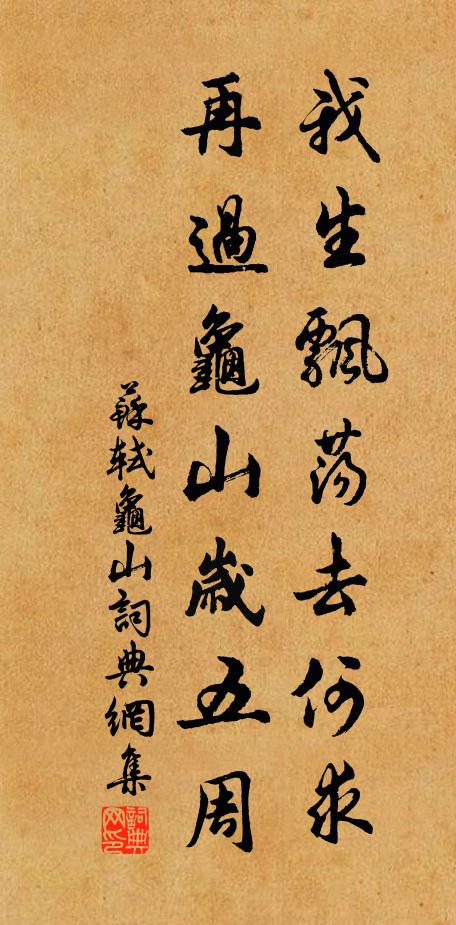 我生飄荡去何求
再過龜山歲五周
蘇軾龜山詞典網集
詞典网印